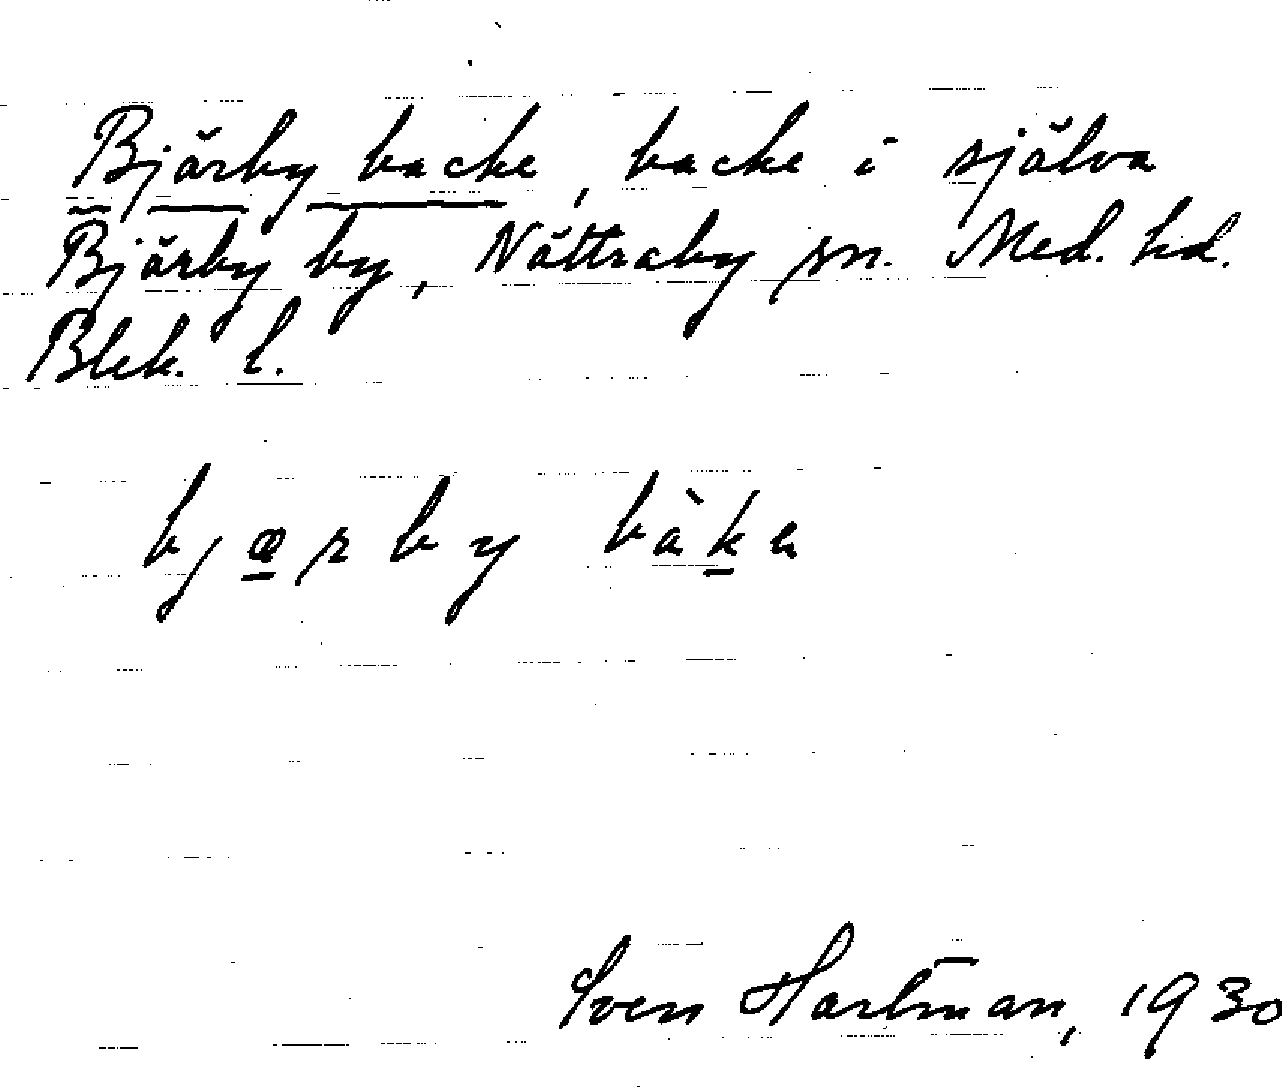 Bjärby backe, backe i själva
Bjärby by, Nättraby sn. Med. hd.
Blek. l.
bjærby bàkə
Sven Hartman, 1930